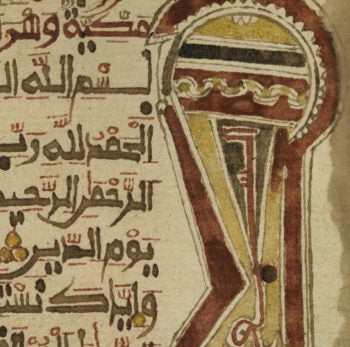 مكية وهي
بسم الله ال
الحمد لله رب
الرحمن الرحيم
يوم الدين
وإياك نستعـ